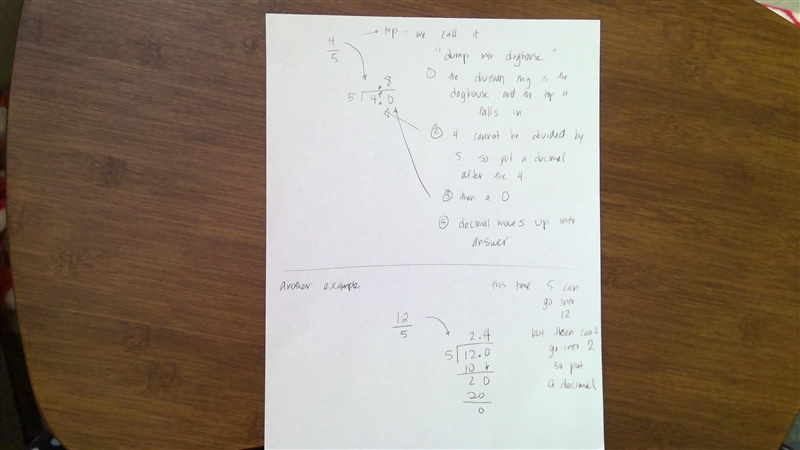 4
5
top - we call it
"dump into doghouse"
① the division thing is the
doghouse and the top #
falls in
.8
5 4.0
② 4 cannot be divided by
5 so put a decimal
after the 4
③ then a 0
④ decimal moves up into
answer
another example
12
5
2.4
5 12.0
10
20
20
0
this time 5 can
go into
12
but then can't
go into 2
so put
a decimal